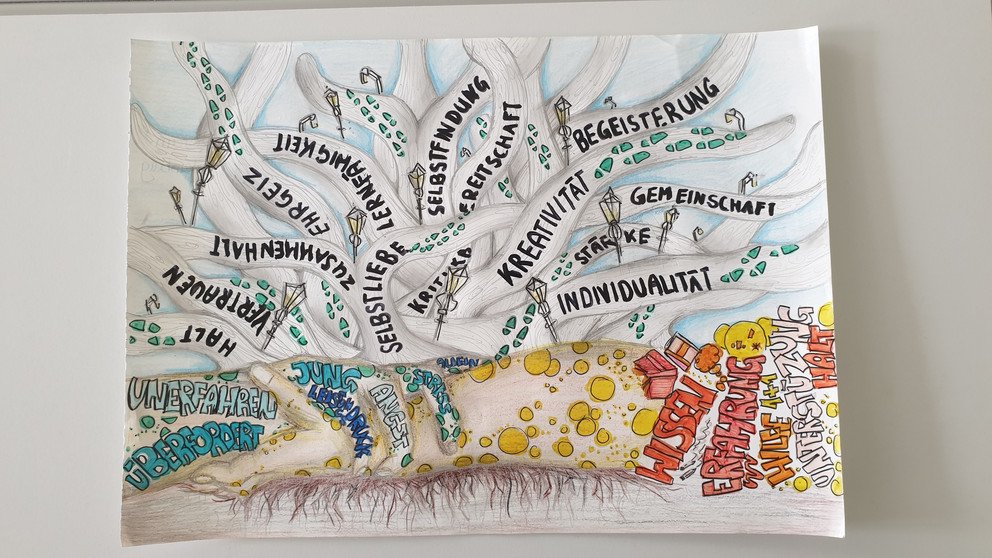 LERNFÄHIGKEIT
EHRGEIZ
ZUSAMMENHALT
VERTRAUEN
HALT
SELBSTLIEBE
SELBSTFINDUNG
KREATIVITÄT
BEGEISTERUNG
GEMEINSCHAFT
STÄRKE
INDIVIDUALITÄT
UNERFAHREN
ÜBERFORDERT
JUNG
LEISTUNGSDRUCK
ANGST
STRESS
WISSEN
ERFAHRUNG
HILFE 1+1
UNTERSTÜTZUNG
HALT